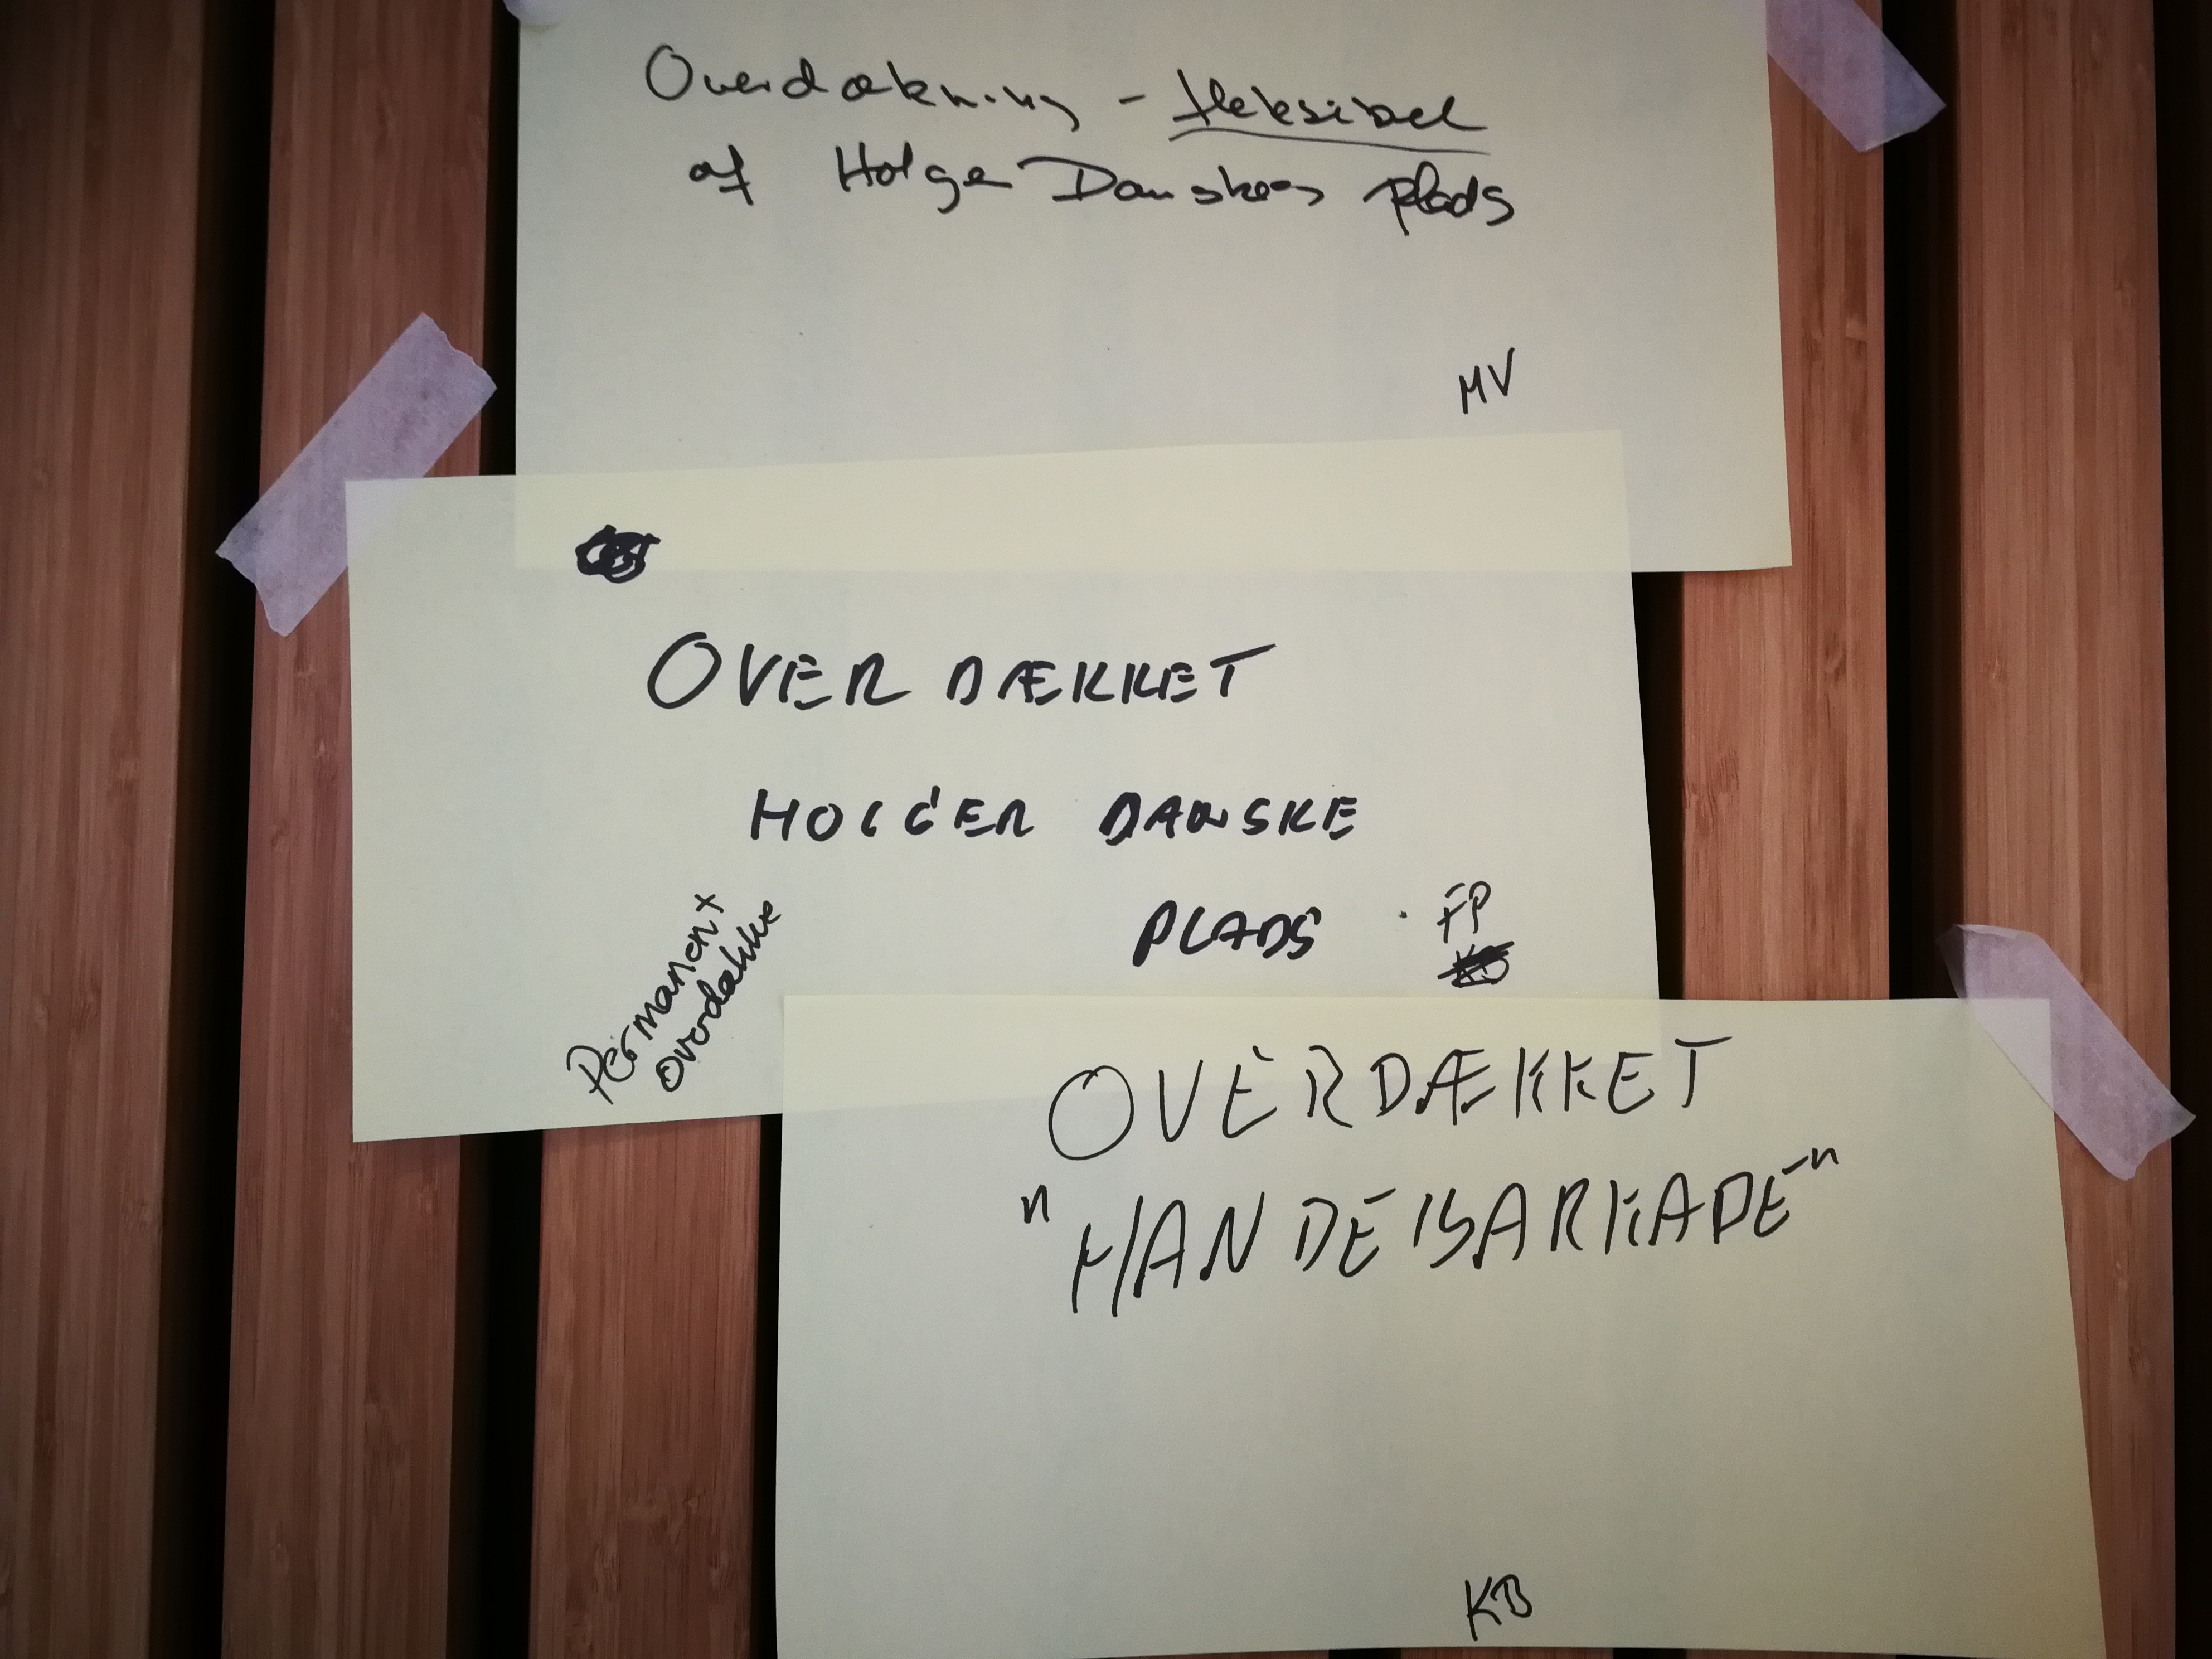 Overdækning - fleksibel
af Holger Danskes plads
MV
OVERDÆKKET
HOLGER DANSKE
PLADS
FP
Permanent
overdække
OVERDÆKKET
"HANDELSARKADE"
KB